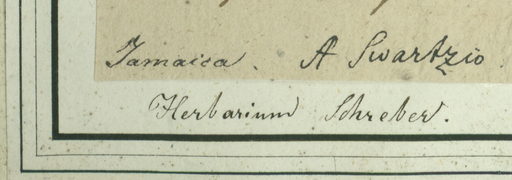 Jamaica. A Swartzio
Herbarium Schreber.